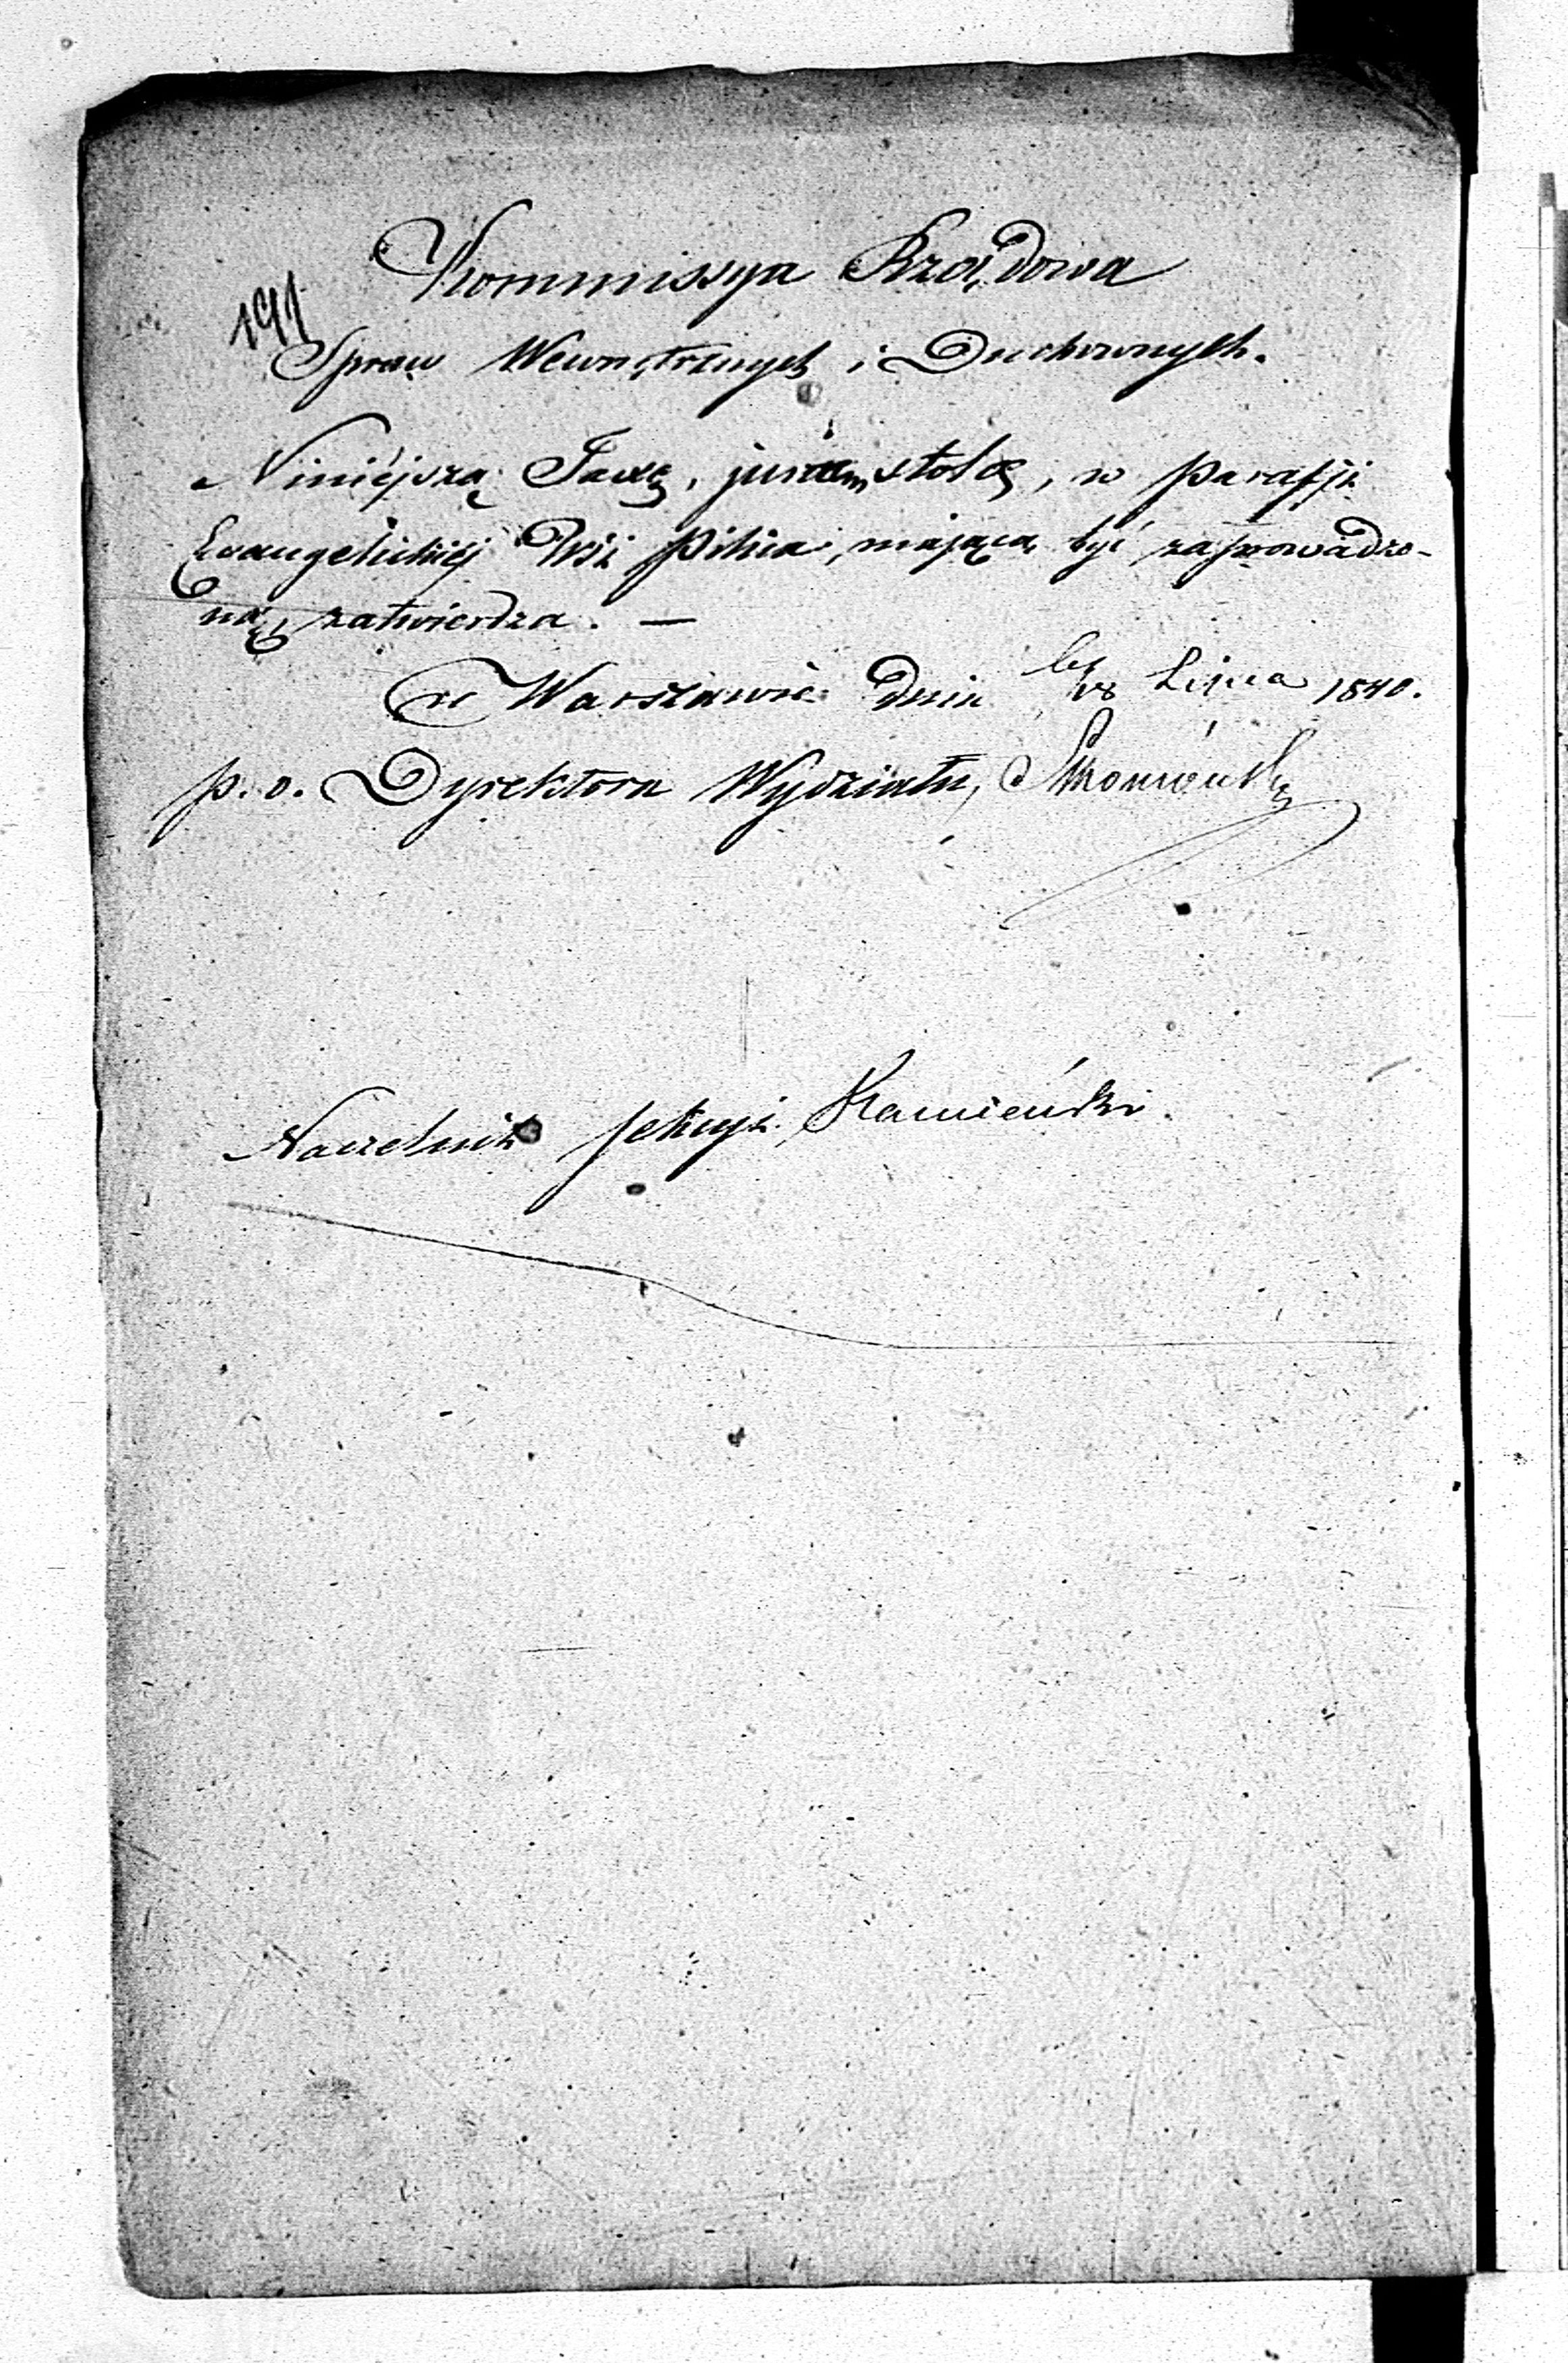 Kommissya Rządowa
191
Spraw Wewnętrznych i Duchownych.
Niniejszą Taxę, jurium stolæ, w Parafji
Ewangelickiej Wsi Pilica, mającą być zaprowadzo-
ną, zatwierdza. —
w Warszawie dnia 6/18 Lipca 1840.
p. o. Dyrektora Wydziału,
Naczelnik Sekcyi Kamieński.